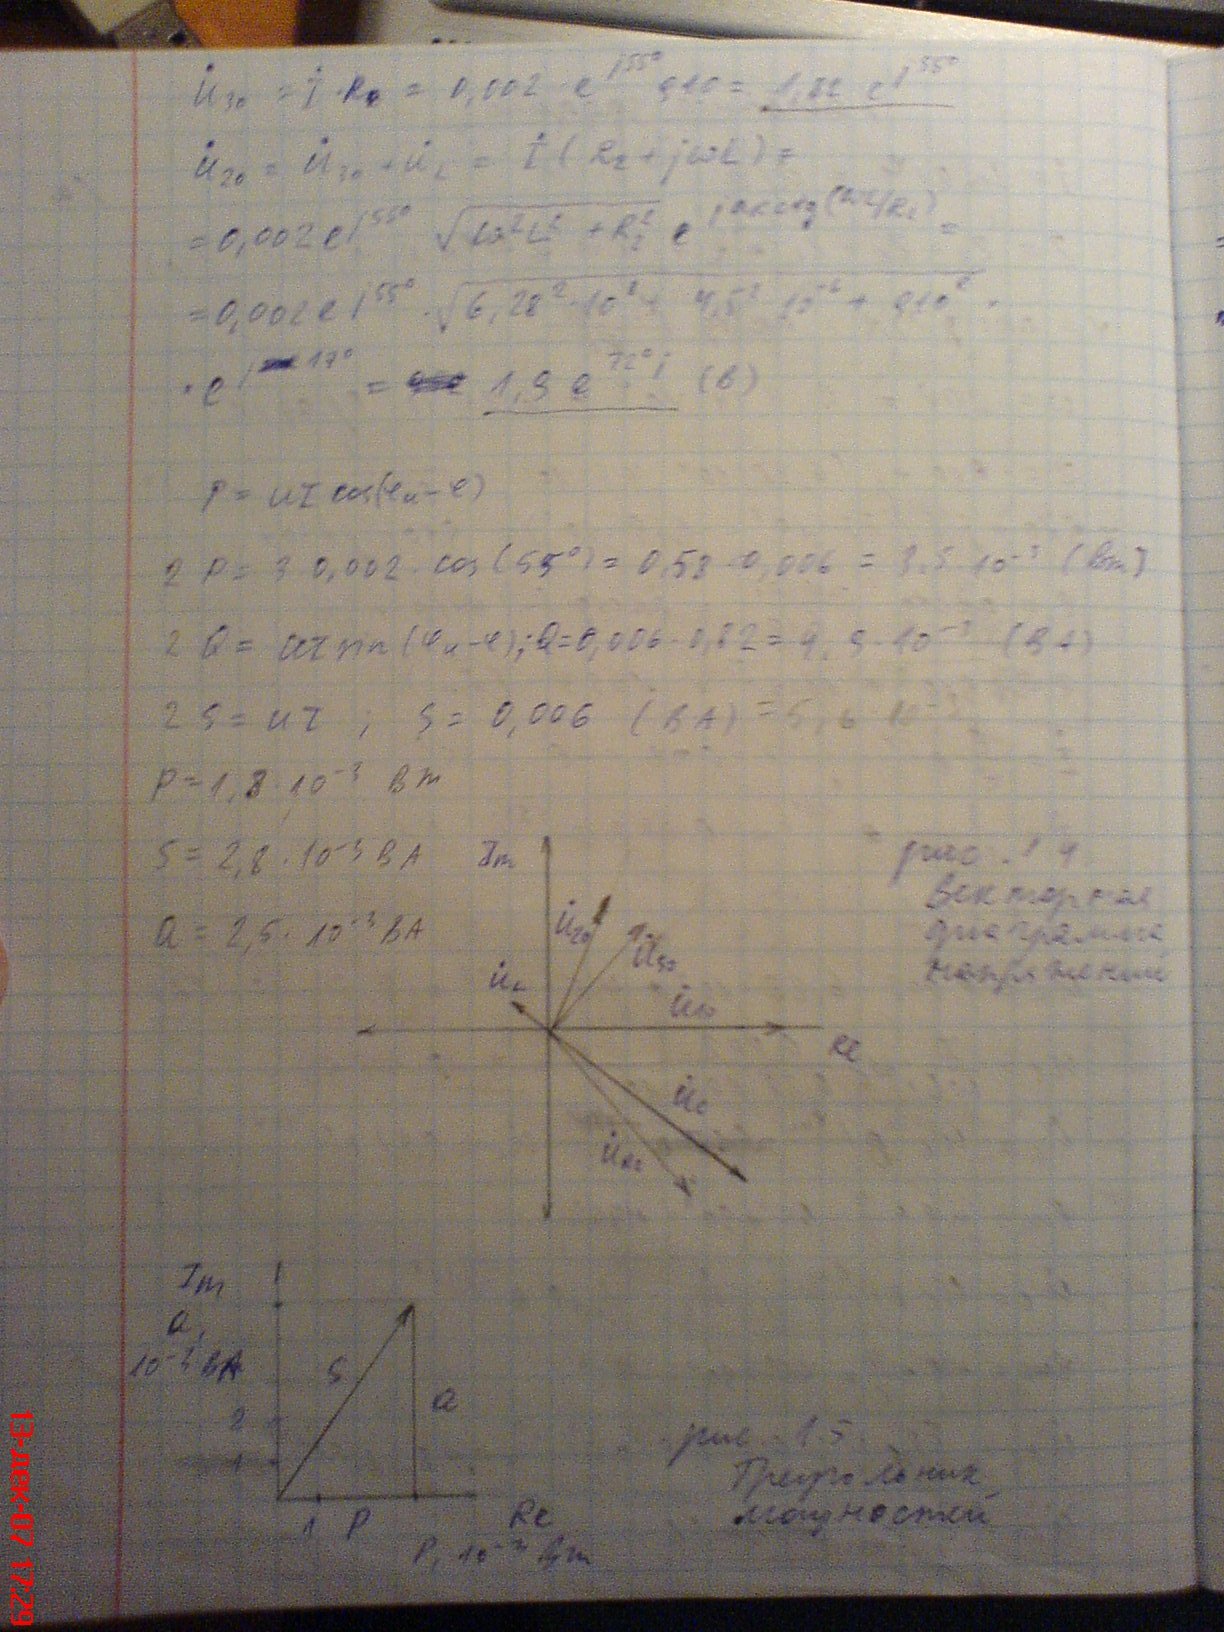 U̇₃₀ = İ · R₂ = 0,002 · e^{j55°} · 910 = 1,82 e^{j55°}
U̇₂₀ = U̇₃₀ + U̇_L = İ (R₂ + jωL) =
= 0,002 e^{j55°} √(ω²L² + R₂²) e^{j arctg(ωL/R₂)} =
= 0,002 e^{j55°} · √(6,28² · 10⁸ · 4,5² · 10⁻⁶ + 910²) ·
· e^{j 17°} = 1,9 e^{72°j} (В)
P = UI cos(φu - φ)
2 P = 3 · 0,002 · cos(55°) = 0,58 · 0,006 = 3.5 · 10⁻³ (Вт)
2 Q = UI sin(φu - φ); Q = 0,006 · 0,82 = 4,9 · 10⁻³ (ВА)
2 S = UI ; S = 0,006 (ВА) = 5,6 · 10⁻³
P = 1,8 · 10⁻³ Вт
S = 2,8 · 10⁻³ ВА
Q = 2,5 · 10⁻³ ВА
Im
рис. 1.4
векторная
диаграмма
напряжений
U̇₂₀
U̇₃₀
U̇_L
U̇₁₀
Re
U̇_C
Im
Q,
10⁻³ ВА
S
Q
2
1
1
P
Re
P, 10⁻³ Вт
рис. 1.5
Треугольник
мощностей
13-дек-07 17:29